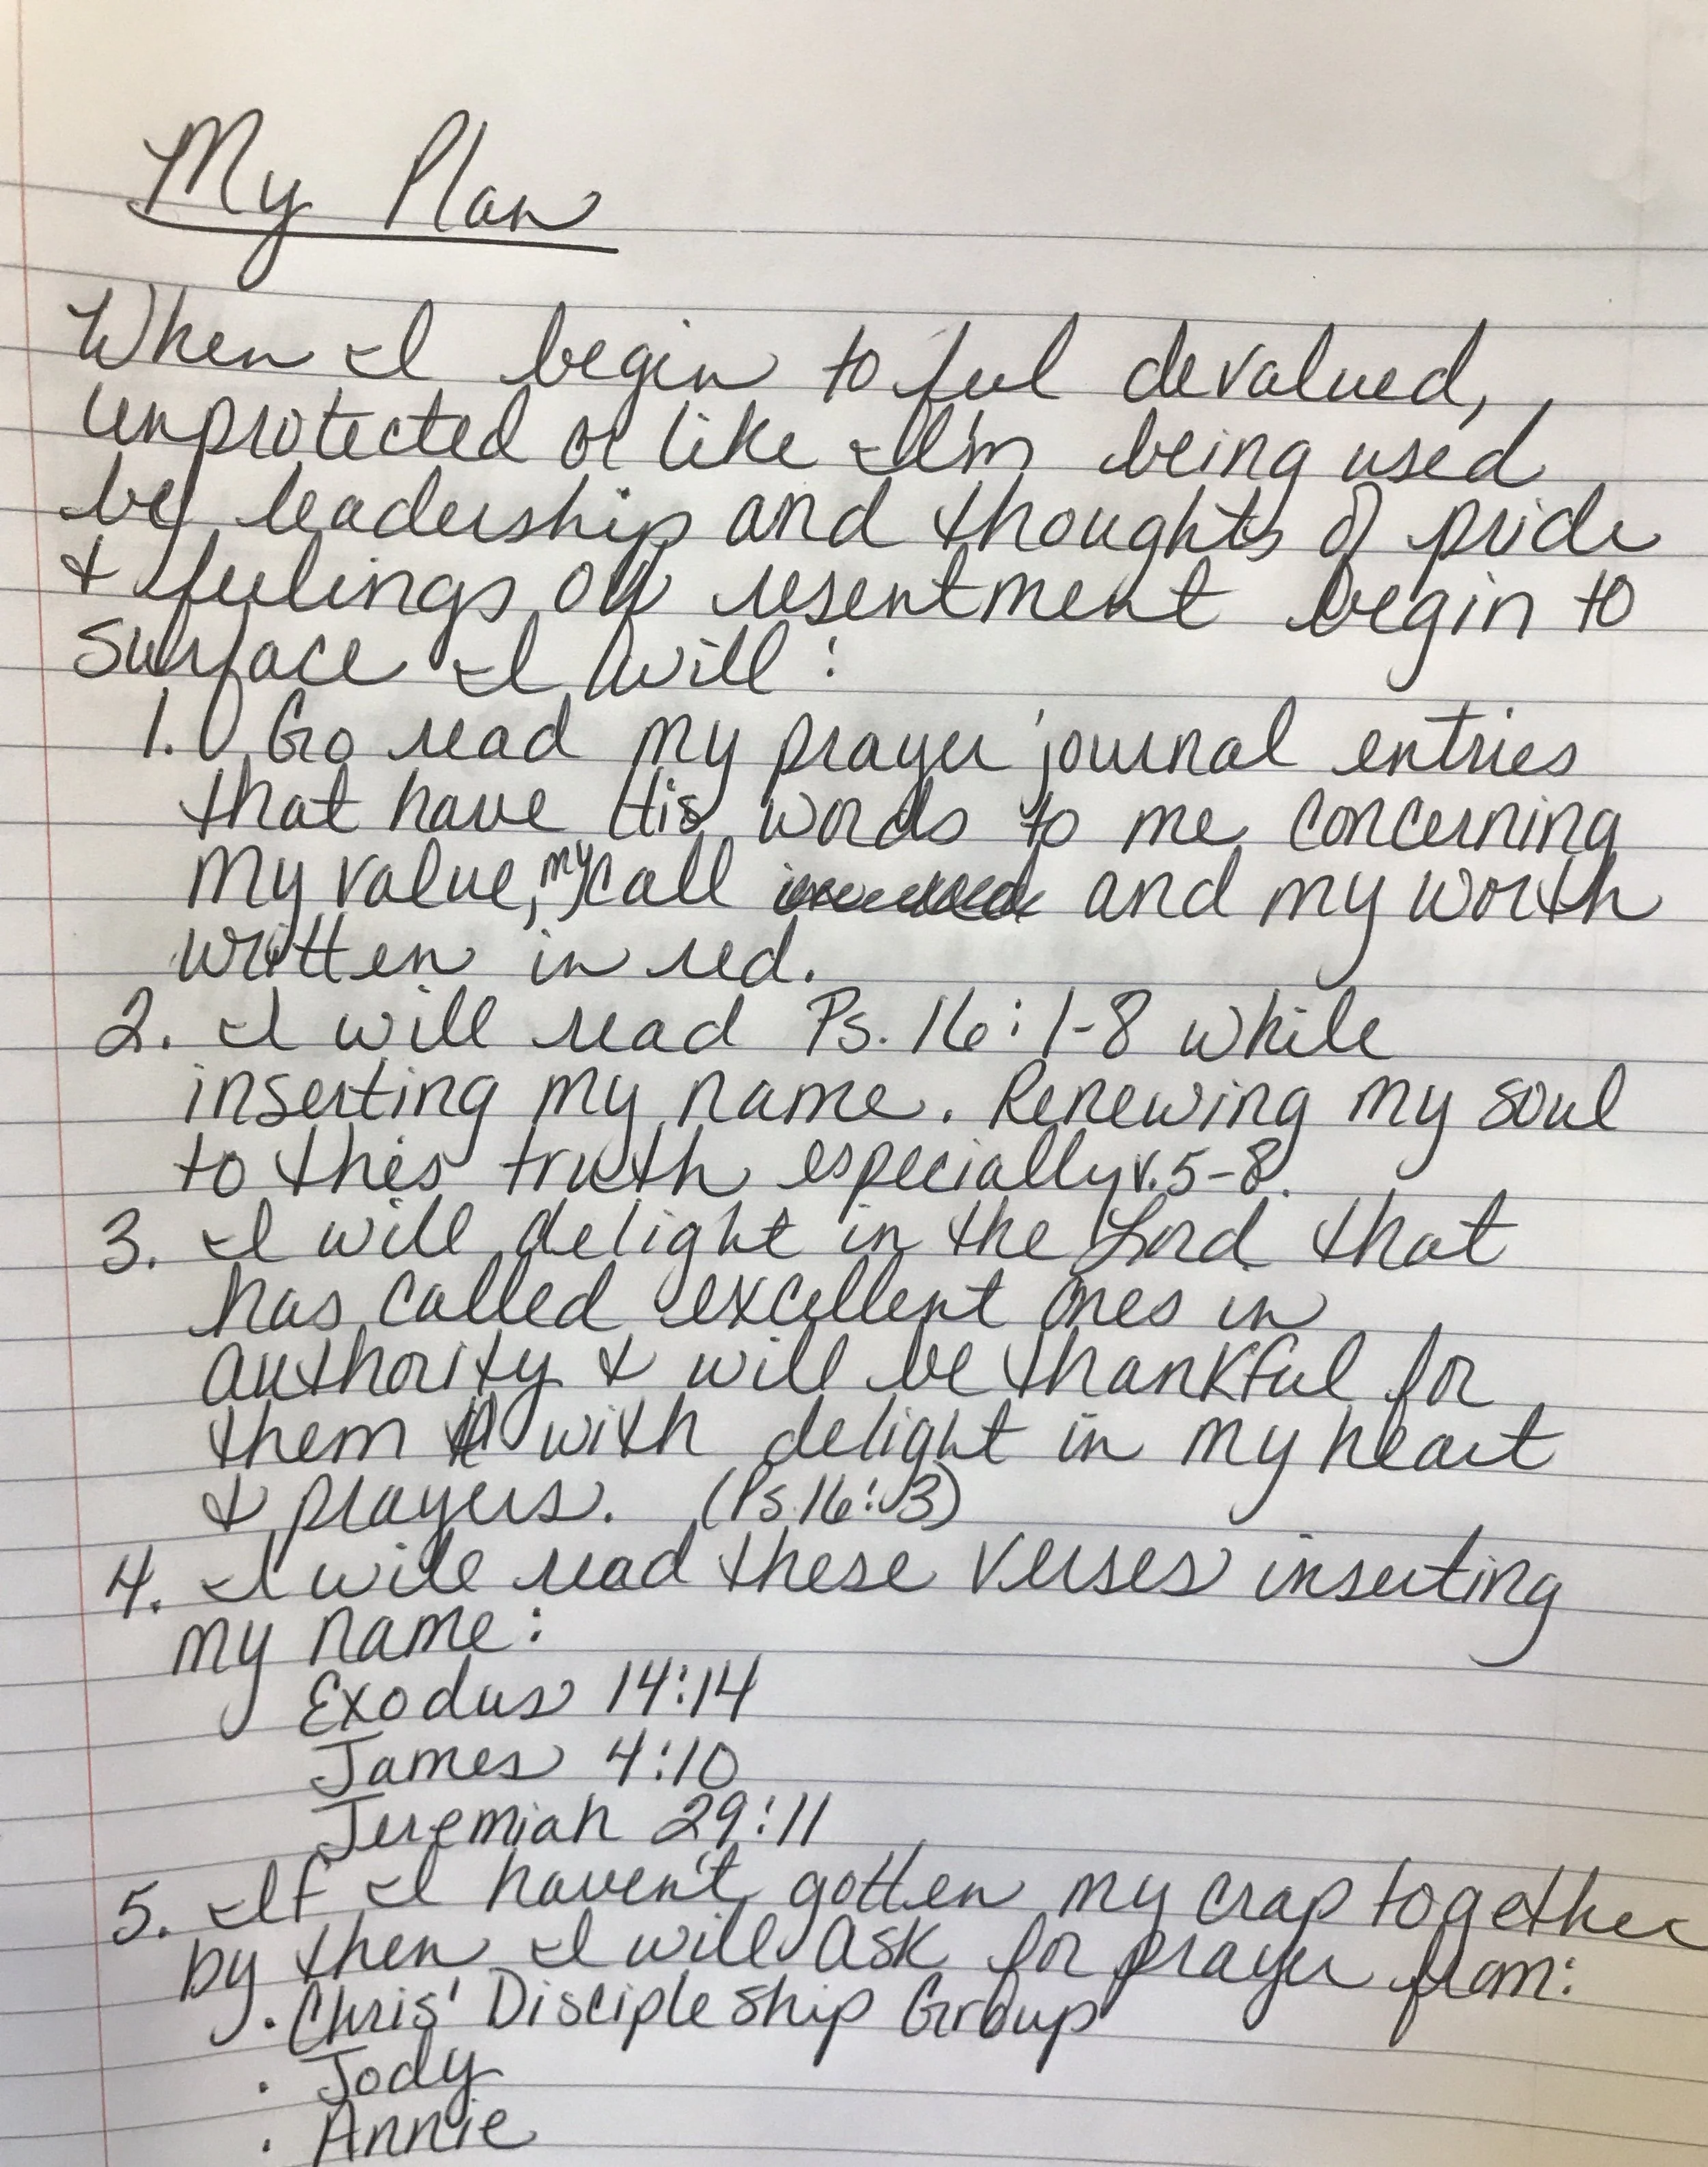 My Plan
When I begin to feel devalued,
unprotected or like I'm being used
by leadership and thoughts of pride
& feelings of resentment begin to
surface I will:
1. Go read my prayer journal entries
that have His words to me concerning
my value, my call and my worth
written in red.
2. I will read Ps. 16:1-8 while
inserting my name. Renewing my soul
to this truth especially v.5-8.
3. I will delight in the Lord that
has called excellent ones in
authority & will be thankful for
them with delight in my heart
& prayers. (Ps.16:3)
4. I will read these verses inserting
my name:
Exodus 14:14
James 4:10
Jeremiah 29:11
5. If I haven't gotten my crap together
by then I will ask for prayer from:
· Chris' Discipleship Group
· Jody
· Annie